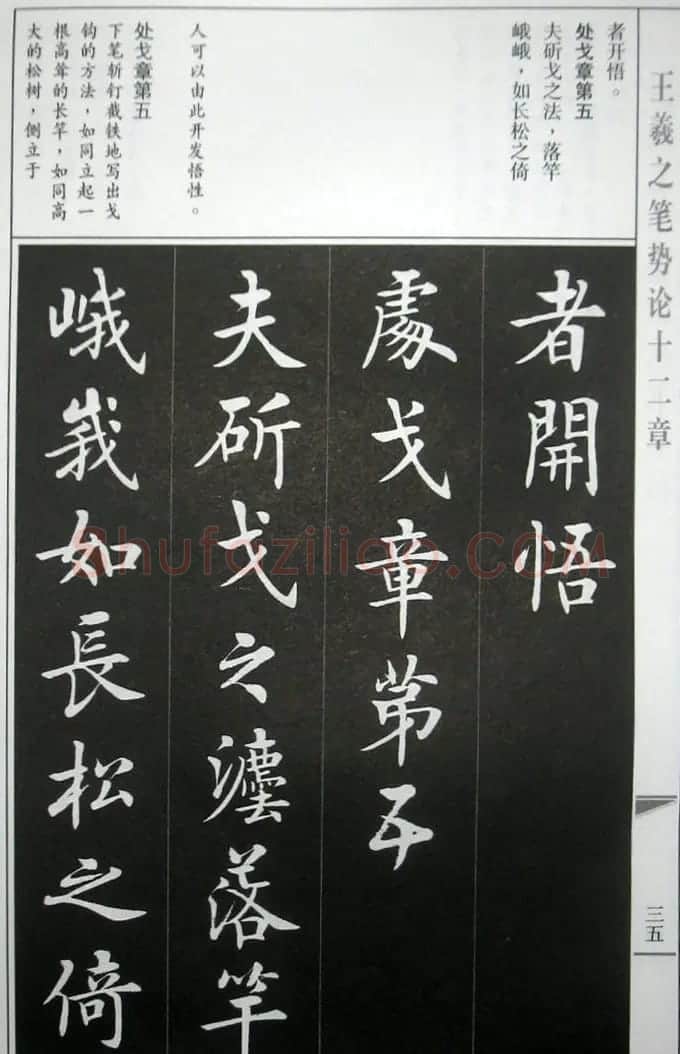 者开悟。
处戈章第五
夫斫戈之法，落竿
峨峨，如长松之倚
人可以由此开发悟性。
处戈章第五
下笔斩钉截铁地写出戈
钩的方法，如同立起一
根高耸的长竿，如同高
大的松树，倒立于
王羲之笔势论十二章
者開悟
處戈章第五
夫斫戈之灋落竿
峨峩如長松之倚
三五
Shufaziliao.COM